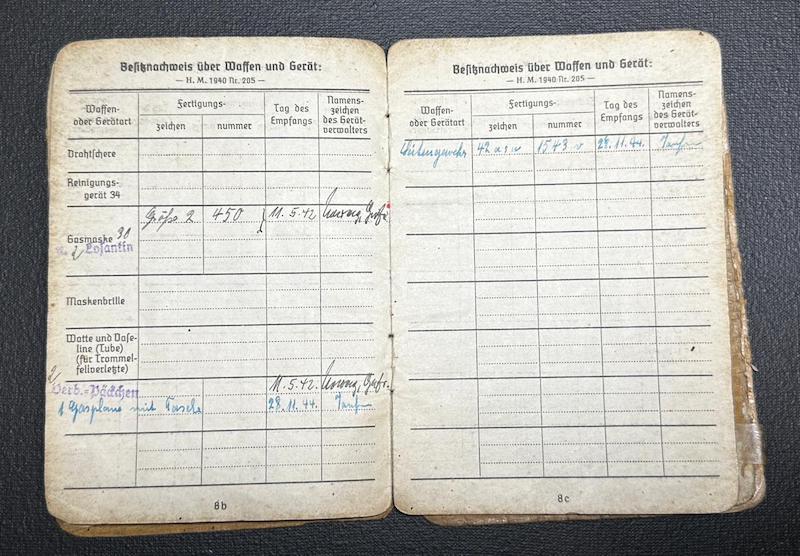 Besitznachweis über Waffen und Gerät:
— H. M. 1940 Nr. 205 —
Waffen-
oder Gerätart
Fertigungs-
zeichen
nummer
Tag des
Empfangs
Namens-
zeichen
des Gerät-
verwalters
Drahtschere
Reinigungs-
gerät 34
Größe 2 450 11.5.42
Gasmaske 30
2 Losantin
Maskenbrille
Watte und Vase-
line (Tube)
(für Trommel-
fellverletzte)
2
Verb.-Päckchen 11.5.42.
1 Gasplane mit Tasche 28.11.44.
8b
Besitznachweis über Waffen und Gerät:
— H. M. 1940 Nr. 205 —
Waffen-
oder Gerätart
Fertigungs-
zeichen
nummer
Tag des
Empfangs
Namens-
zeichen
des Gerät-
verwalters
Seitengewehr 42 1543 28.11.44.
8c